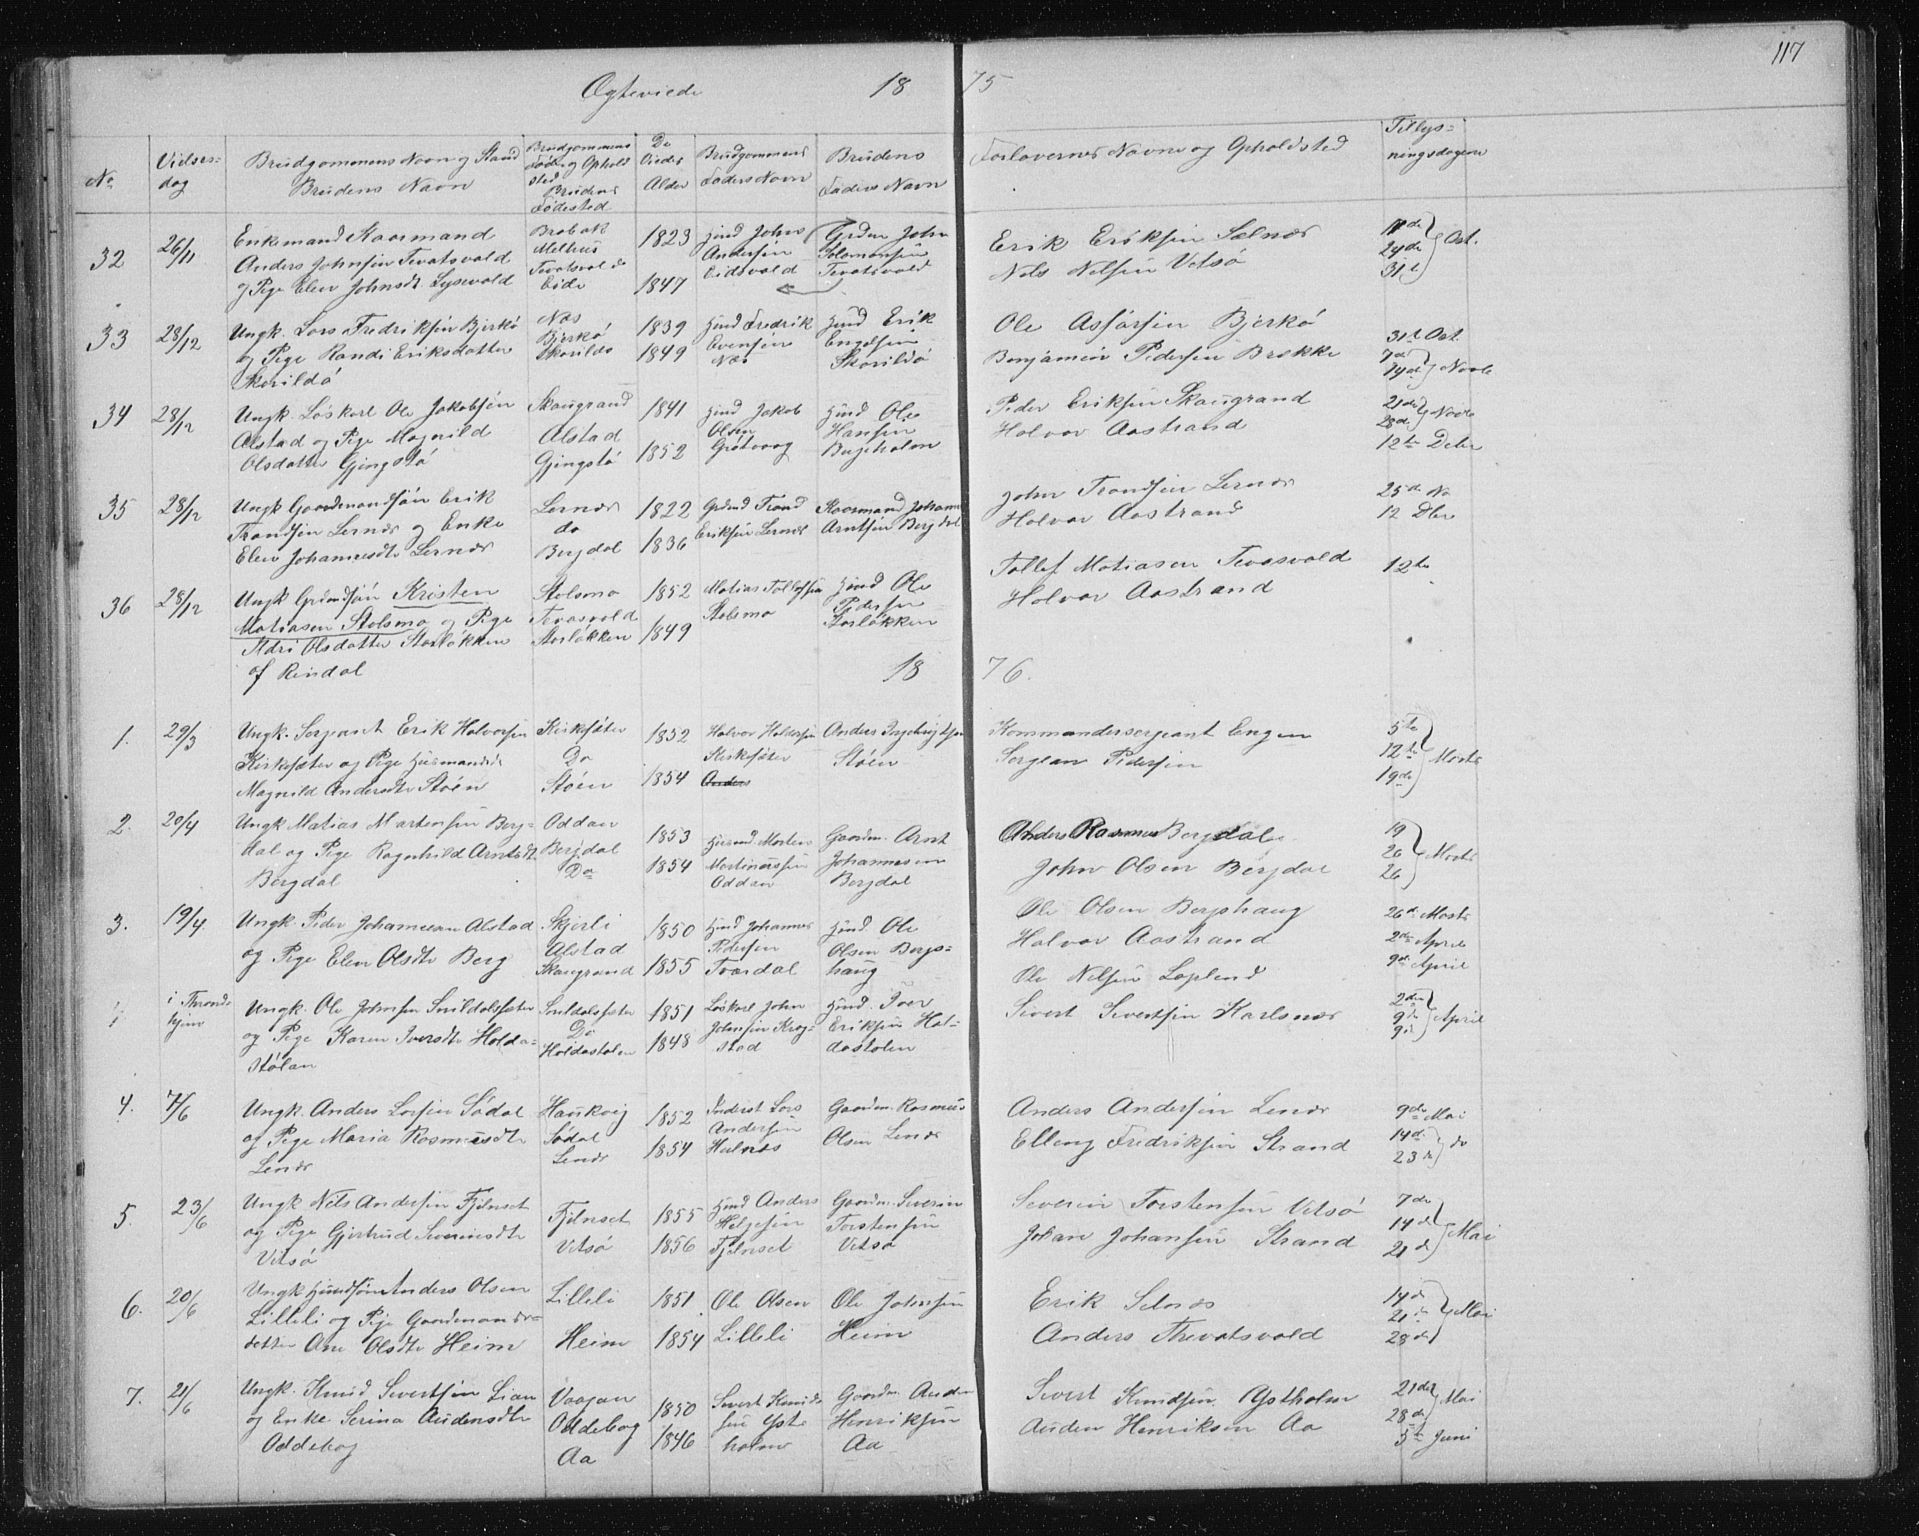 117
Ægteviede 18 75
No
Vielses-
dag
Brudgommens Navn og Stand
Brudens Navn
Brudgommens
Føde og Ophold
sted
Brudens
Fødested
De
Viedes
Alder
Brudgommens
Faders Navn
Brudens
Faders Navn
Forlovernes Navne og Opholdsted
Tillys-
ningsdagene
32 26/11
Enkemand Kaarmand
Anders Johnsen Tevatsvold
og Pige Elen Johnsdt. Lysevold
Melhus
Tevatsvold
Eide
1823
1847
Hmd John
Andersen
Eidsvold
Grdm John
Solomonsen
Tevatsvold
Erik Eriksen Selnæs
Nils Nilsen Vitsø
24de
31te
Oct.
33 28/12
Ungk. Lars Fredriksen Bjerkø
og Pige Randi Eriksdatter
Skorildø
Næs
Bjerkø
Skorildø
1839
1849
Hmd Fredrik
Evensen
Næs
Hmd Erik
Skorildø
Ole Assorsen Bjerkø
Benjamin Pedersen Brekke
31te Oct.
7de
14de
Novb
34 28/12
Ungk. Løskarl Ole Jakobsen
Alstad og Pige Magnild
Olsdatter Gjengstø
Skaugrand
Alstad
Gjengstø
1841
1852
Hmd Jakob
Olsen
Grøtvaag
Hmd Ole
Hansen
Bugeholm
Peder Eriksen Skaugrand
Halvor Aastrand
21de
28de
Novb
12te Dcbr
35 28/12
Ungk Gaardmandssøn Erik
Trondsen Lernæs og Enke
Elen Johannesdtr Lernæs
Lernæs
do
Bergdal
1822
1836
Grdmd Trond
Eriksen Lernæs
Kaarmand Johannes
Arntsen Bergdal
John Trondsen Lernæs
Halvor Aastrand
25de No
12 Dbr
36 28/12
Ungk Grdmdsøn Kristen
Matiasen Stolsmo og Pige
Sidri Olsdatter Storløkken
af Rindal
Stolsmo
Tevasvold
Storløkken
1852
1849
Matias Tollefsen
Stolsmo
Hmd Ole
Pedersen
Storløkken
Tollef Matiasen Tevasvold
Halvor Aastrand
12te
18 76.
1. 29/3
Ungk. Sergeant Erik Halvorsen
Kirksæter og Pige Husmandsd
Magnild Andersdtr Støen
Kirksæter
Do
Støen
1852
1854
Halvor Haldorsen
Kirksæter
Anders
Anders Ingebrigtsen
Støen
Kommandersergeant Engen
Sergean Pedersen
5te
12te
19de
Marts
2. 20/4
Ungk Matias Martensen Berg-
dal og Pige Ragnhild Arntsdt
Bergdal
Oddan
Bergdal
Do
1853
1854
Husmd Morten
Martinussen
Oddan
Gaardm. Arnt
Johannesen
Bergdal
Anders Rasmus Bergdal
John Olsen Bergdal
19
26
26
Marts
3. 19/4
Ungk. Peder Johannesen Alstad
og Pige Elen Olsdtr Berg
Skjerli
Alstad
Skaugrand
1850
1855
Hmd Johannes
Pedersen
Tvardal
Hmd. Ole
Olsen Bergs-
haug
Ole Olsen Bergshaug
Halvor Aastrand
26de Marts
2de April
9de April
i Thrond-
hjem
Ungk. Ole Johnsen Snildalsæter
og Pige Karen Iversdtr Holda-
Stølan
Snildalsæter
Do
Holdastolen
1851
1848
Løskarl John
Johnsen Krog-
stad
Hmd. Iver
Eriksen Hol-
dastolen
Ole Nelsen Lapland
Sivert Sivertsen Karlsnæs
2den
9de
9de
April
4. 7/6
Ungk. Anders Larsen Sødal
og Pige Maria Rasmusdtr
Lenæs
Haukvig
Sødal
Lenæs
1852
1854
Inderst Lars
Andersen
Halnæs
Gaardm. Rasmus
Olsen Lenæs
Anders Andersen Lenæs
Elling Fredriksen Strand
9de Mai
14de
23de
do
5. 23/6
Ungk Nils Andersen Fjelnset
og Pige Gjertrud Severinsdtr
Vitsø
Fjelnset
Vitsø
1855
1856
Hmd Anders
Helgesen
Fjelnset
Gaardm. Severin
Torstensen
Vitsø
Severin Torstensen Vitsø
Johan Johansen Strand
7de
14de
21de
Mai
6. 20/6
Ungk Husmdsøn Anders Olsen
Lilleli og Pige Gaardmands-
datter Ane Olsdtr Heim
Lilleli
Heim
1851
1854
Ole Olsen
Lilleli
Ole Johnsen
Heim
Erik Selnæs
Anders Thevatsvold
14de
21de
28de
Mai
7. 21/6
Ungk. Knud Sivertsen Lian
og Enke Serina Audensdtr
Oddebog
Vaagan
Oddebog
Aa
1850
1846
Sivert Knud-
sen Yst-
holm
Gaardm. Auden
Henriksen
Aa
Sivert Knudsen Ystholm
Auden Henriksen Aa
21de
28de
Mai
5te Juni